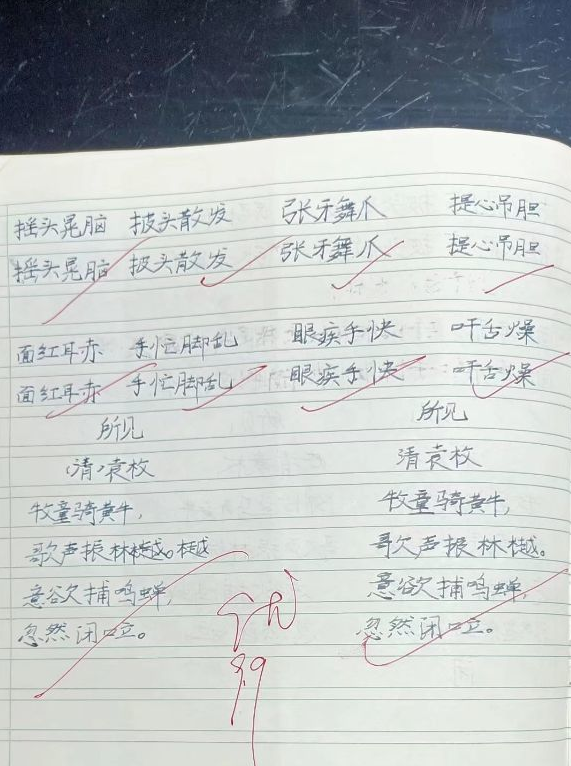 摇头晃脑 披头散发 张牙舞爪 提心吊胆
摇头晃脑 披头散发 张牙舞爪 提心吊胆
面红耳赤 手忙脚乱 眼疾手快 口干舌燥
面红耳赤 手忙脚乱 眼疾手快 口干舌燥
所见
(清)袁枚
牧童骑黄牛,
歌声振林樾。樾
意欲捕鸣蝉,
忽然闭口立。
所见
清袁枚
牧童骑黄牛,
歌声振林樾。
意欲捕鸣蝉,
忽然闭口立。
9.9